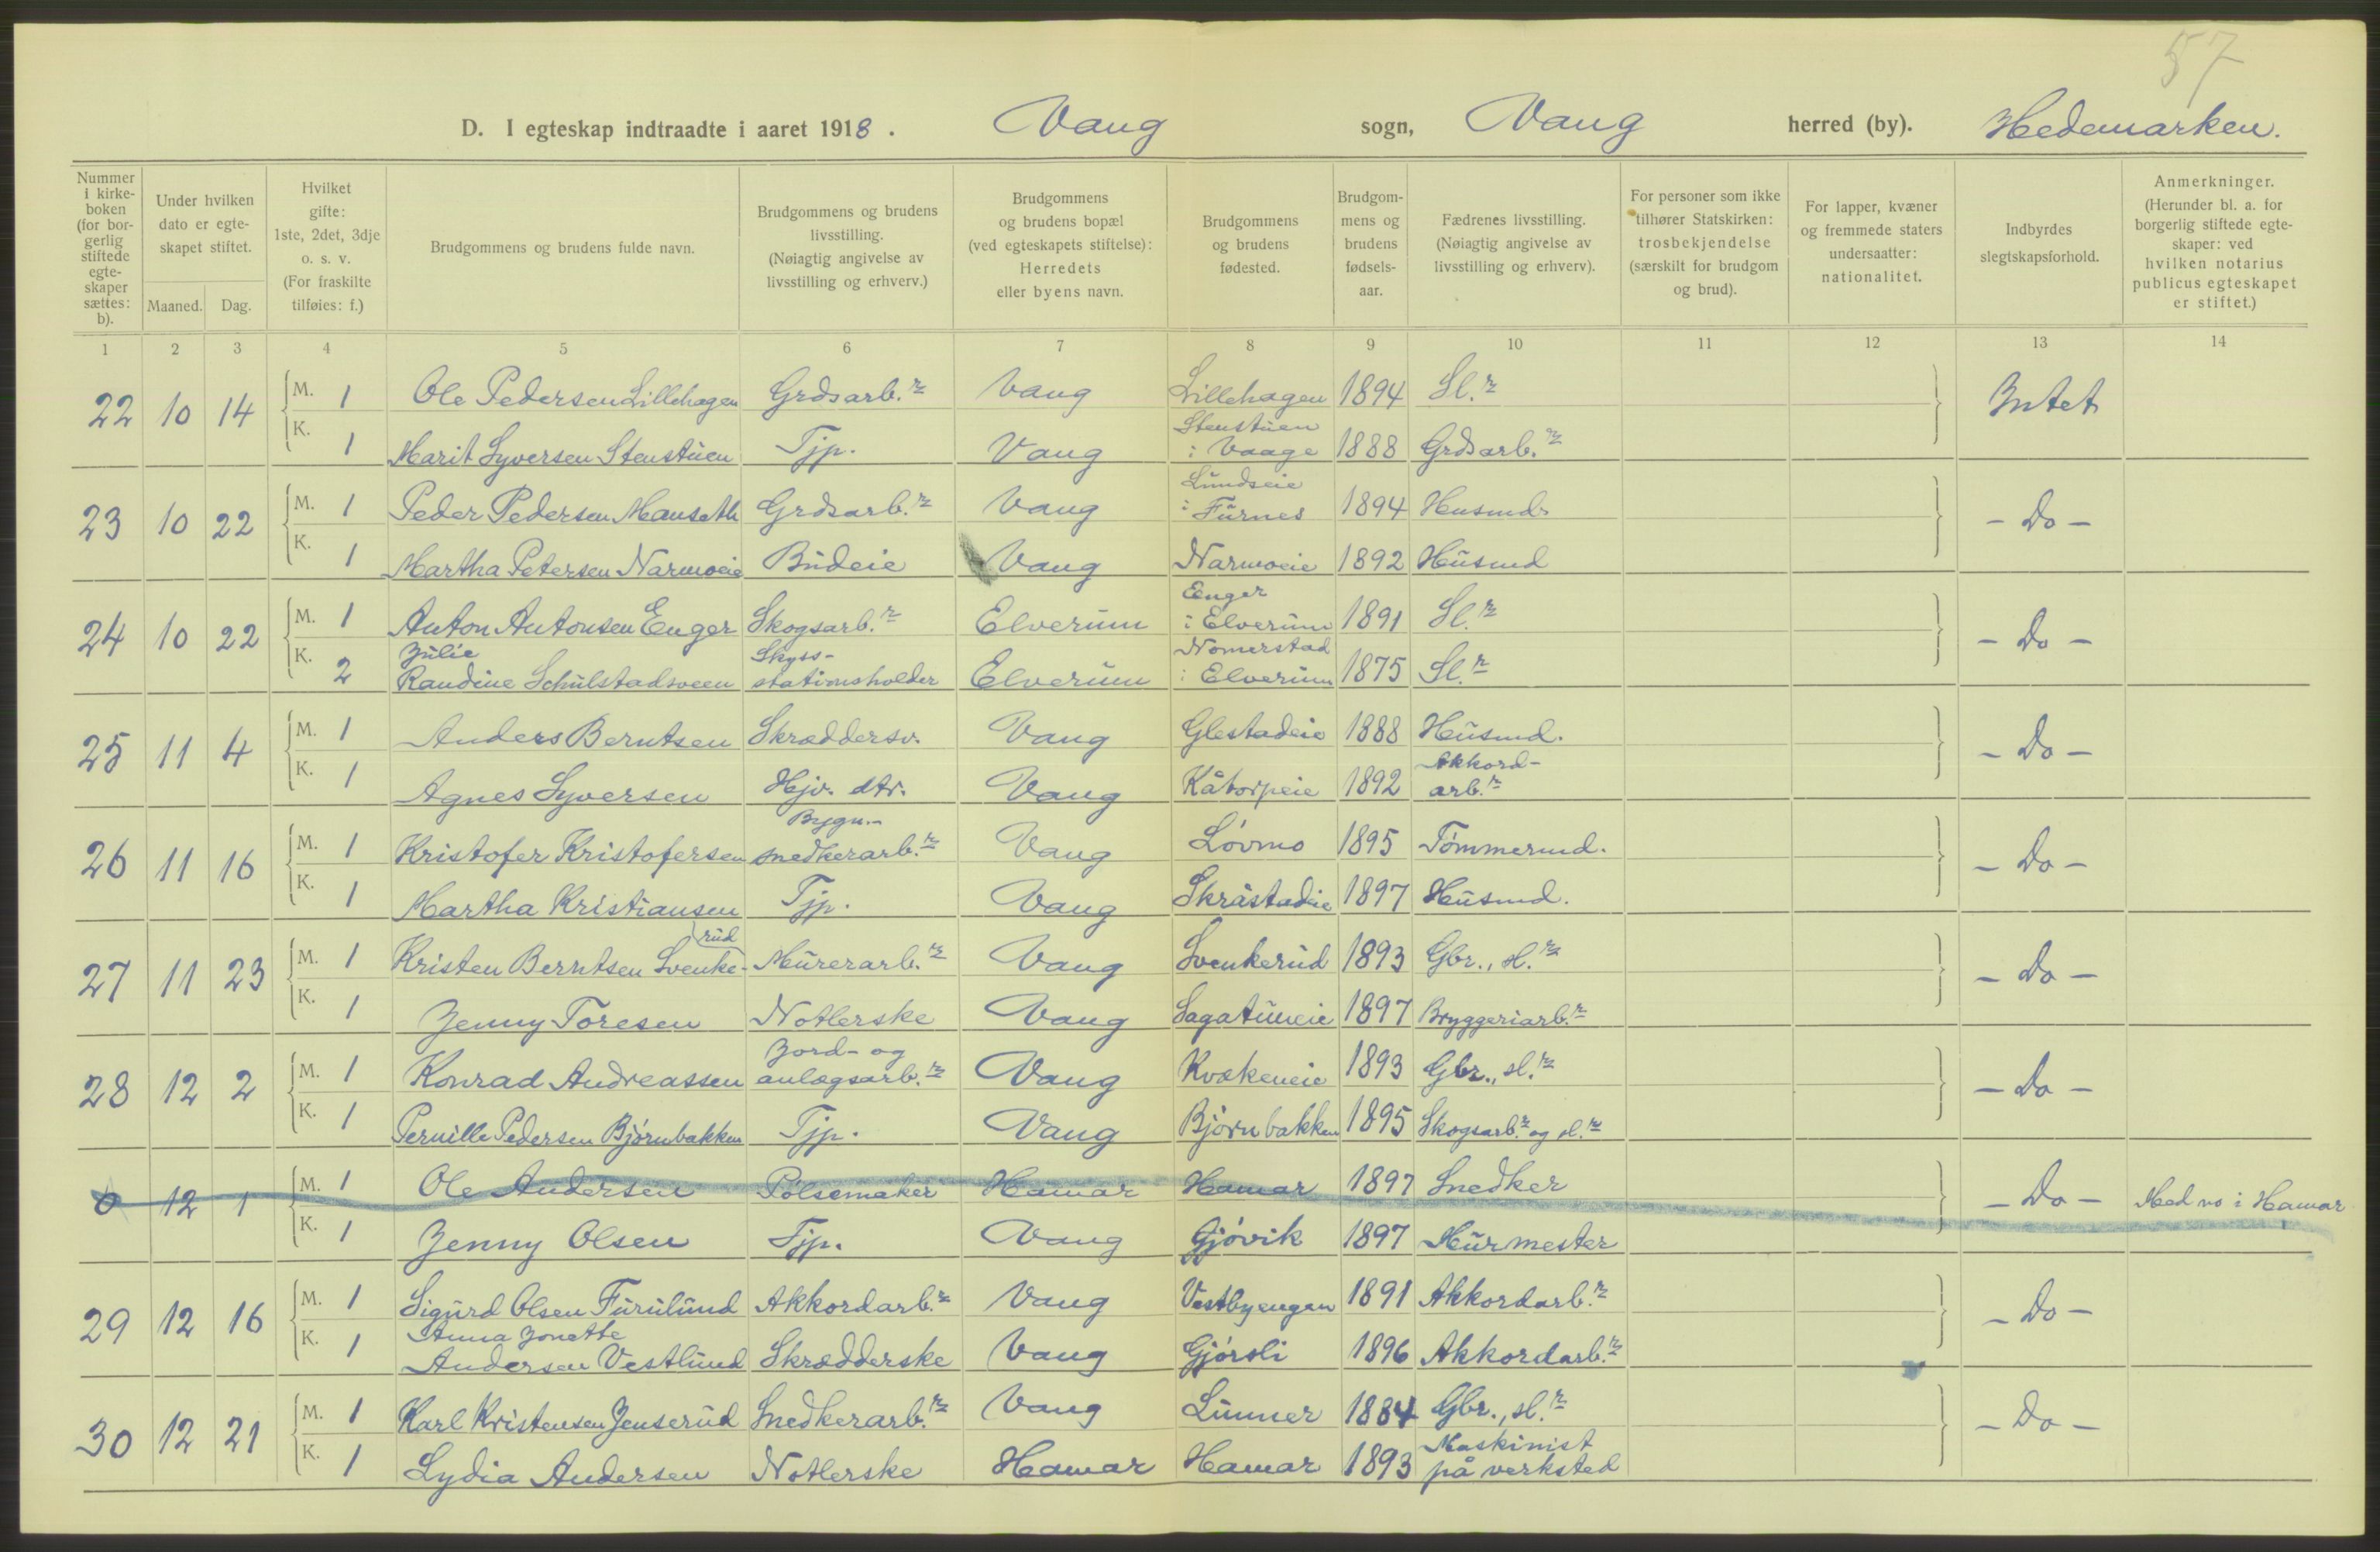 57
D. I egteskap indtraadte i aaret 1918. Vang sogn, Vang herred (by). Hedemarken.
Nummer i kirke-boken (for bor-gerlig stiftede egte-skaper sættes: b).
Under hvilken dato er egte-skapet stiftet.
Maaned. Dag.
Hvilket gifte: 1ste, 2det, 3dje o. s. v. (For fraskilte tilføies: f.)
Brudgommens og brudens fulde navn.
Brudgommens og brudens livsstilling. (Nøiagtig angivelse av livsstilling og erhverv.)
Brudgommens og brudens bopæl (ved egteskapets stiftelse): Herredets eller byens navn.
Brudgommens og brudens fødested.
Brudgom-mens og brudens fødsels-aar.
Fædrenes livsstilling. (Nøiagtig angivelse av livsstilling og erhverv).
For personer som ikke tilhører Statskirken: trosbekjendelse (særskilt for brudgom og brud).
For lapper, kvæner og fremmede staters undersaatter: nationalitet.
Indbyrdes slegtskapsforhold.
Anmerkninger. (Herunder bl. a. for borgerlig stiftede egte-skaper: ved hvilken notarius publicus egteskapet er stiftet.)
1 2 3 4 5 6 7 8 9 10 11 12 13 14
22 10 14 M. 1 Ole Pedersen Lillehagen Grdsarb.r Vang Lillehagen 1894 Sl.r Intet
K. 1 Marit Syversen Stenstuen Tjp. Vang Stenstuen i Vaage 1888 Grdsarb.r
23 10 22 M. 1 Peder Pedersen Manseth Grdsarb.r Vang Lundseie i Furnes 1894 Husmd. - Do -
K. 1 Martha Petersen Narmoeie Budeie Vang Narmoeie 1892 Husmd
24 10 22 M. 1 Anton Antonsen Enger Skogsarb.r Elverum Enger i Elverum 1891 Sl.r - Do -
K. 2 Julie Randine Schulstadsveen Skyss-stationsholder Elverum Nomerstad i Elverum 1875 Sl.r
25 11 4 M. 1 Anders Berntsen Skræddersv. Vang Glestadeie 1888 Husmd. - Do -
K. 1 Agnes Syversen Hjv. dtr. Vang Kåtorpeie 1892 Akkord-arb.r
26 11 16 M. 1 Kristofer Kristofersen Bygn.-snedkerarb.r Vang Lövmo 1895 Tömmermd. - Do -
K. 1 Martha Kristiansen Tjp. Vang Skråstadeie 1897 Husmd.
27 11 23 M. 1 Kristen Berntsen Svenke-rud Murerarb.r Vang Svenkerud 1893 Gbr., sl.r - Do -
K. 1 Jenny Toresen Notlerske Vang Sagatuneie 1897 Bryggeriarb.r
28 12 2 M. 1 Konrad Andreassen Jord- og anlægsarb.r Vang Kvækeneie 1893 Gbr., sl.r - Do -
K. 1 Pernille Pedersen Björnbakken Tjp. Vang Björnbakken 1895 Skogsarb.r og sl.r
0 12 1 M. 1 Ole Andersen Pölsemaker Hamar Hamar 1897 Snedker - Do - Med no i Hamar
K. 1 Jenny Olsen Tjp. Vang Gjövik 1897 Murmester
29 12 16 M. 1 Sigurd Olsen Furulund Akkordarb.r Vang Vestbyengen 1891 Akkordarb.r - Do -
K. 1 Anna Jonette Andersen Vestlund Skrædderske Vang Gjörsli 1896 Akkordarb.r
30 12 21 M. 1 Karl Kristensen Jenserud Snedkerarb.r Vang Lunner 1884 Gbr., sl.r - Do -
K. 1 Lydia Andersen Notlerske Hamar Hamar 1893 Maskinist på verksted